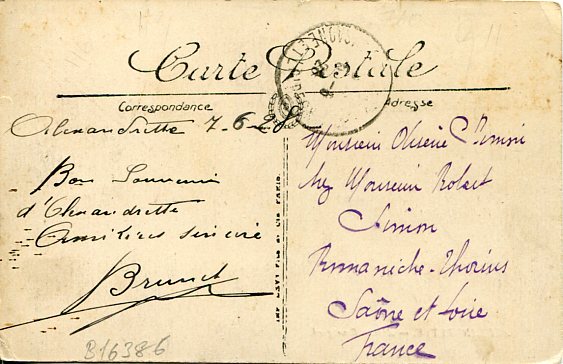 Carte Postale
Correspondance
Adresse
Alexandrette 7.6.28
Bon Souvenir
d'Alexandrette
Amitiés sincère
Brunet
Monsieur Simon
chez Monsieur Robert
Simon
Romanèche-Thorins
Saône et Loire
France
B16386